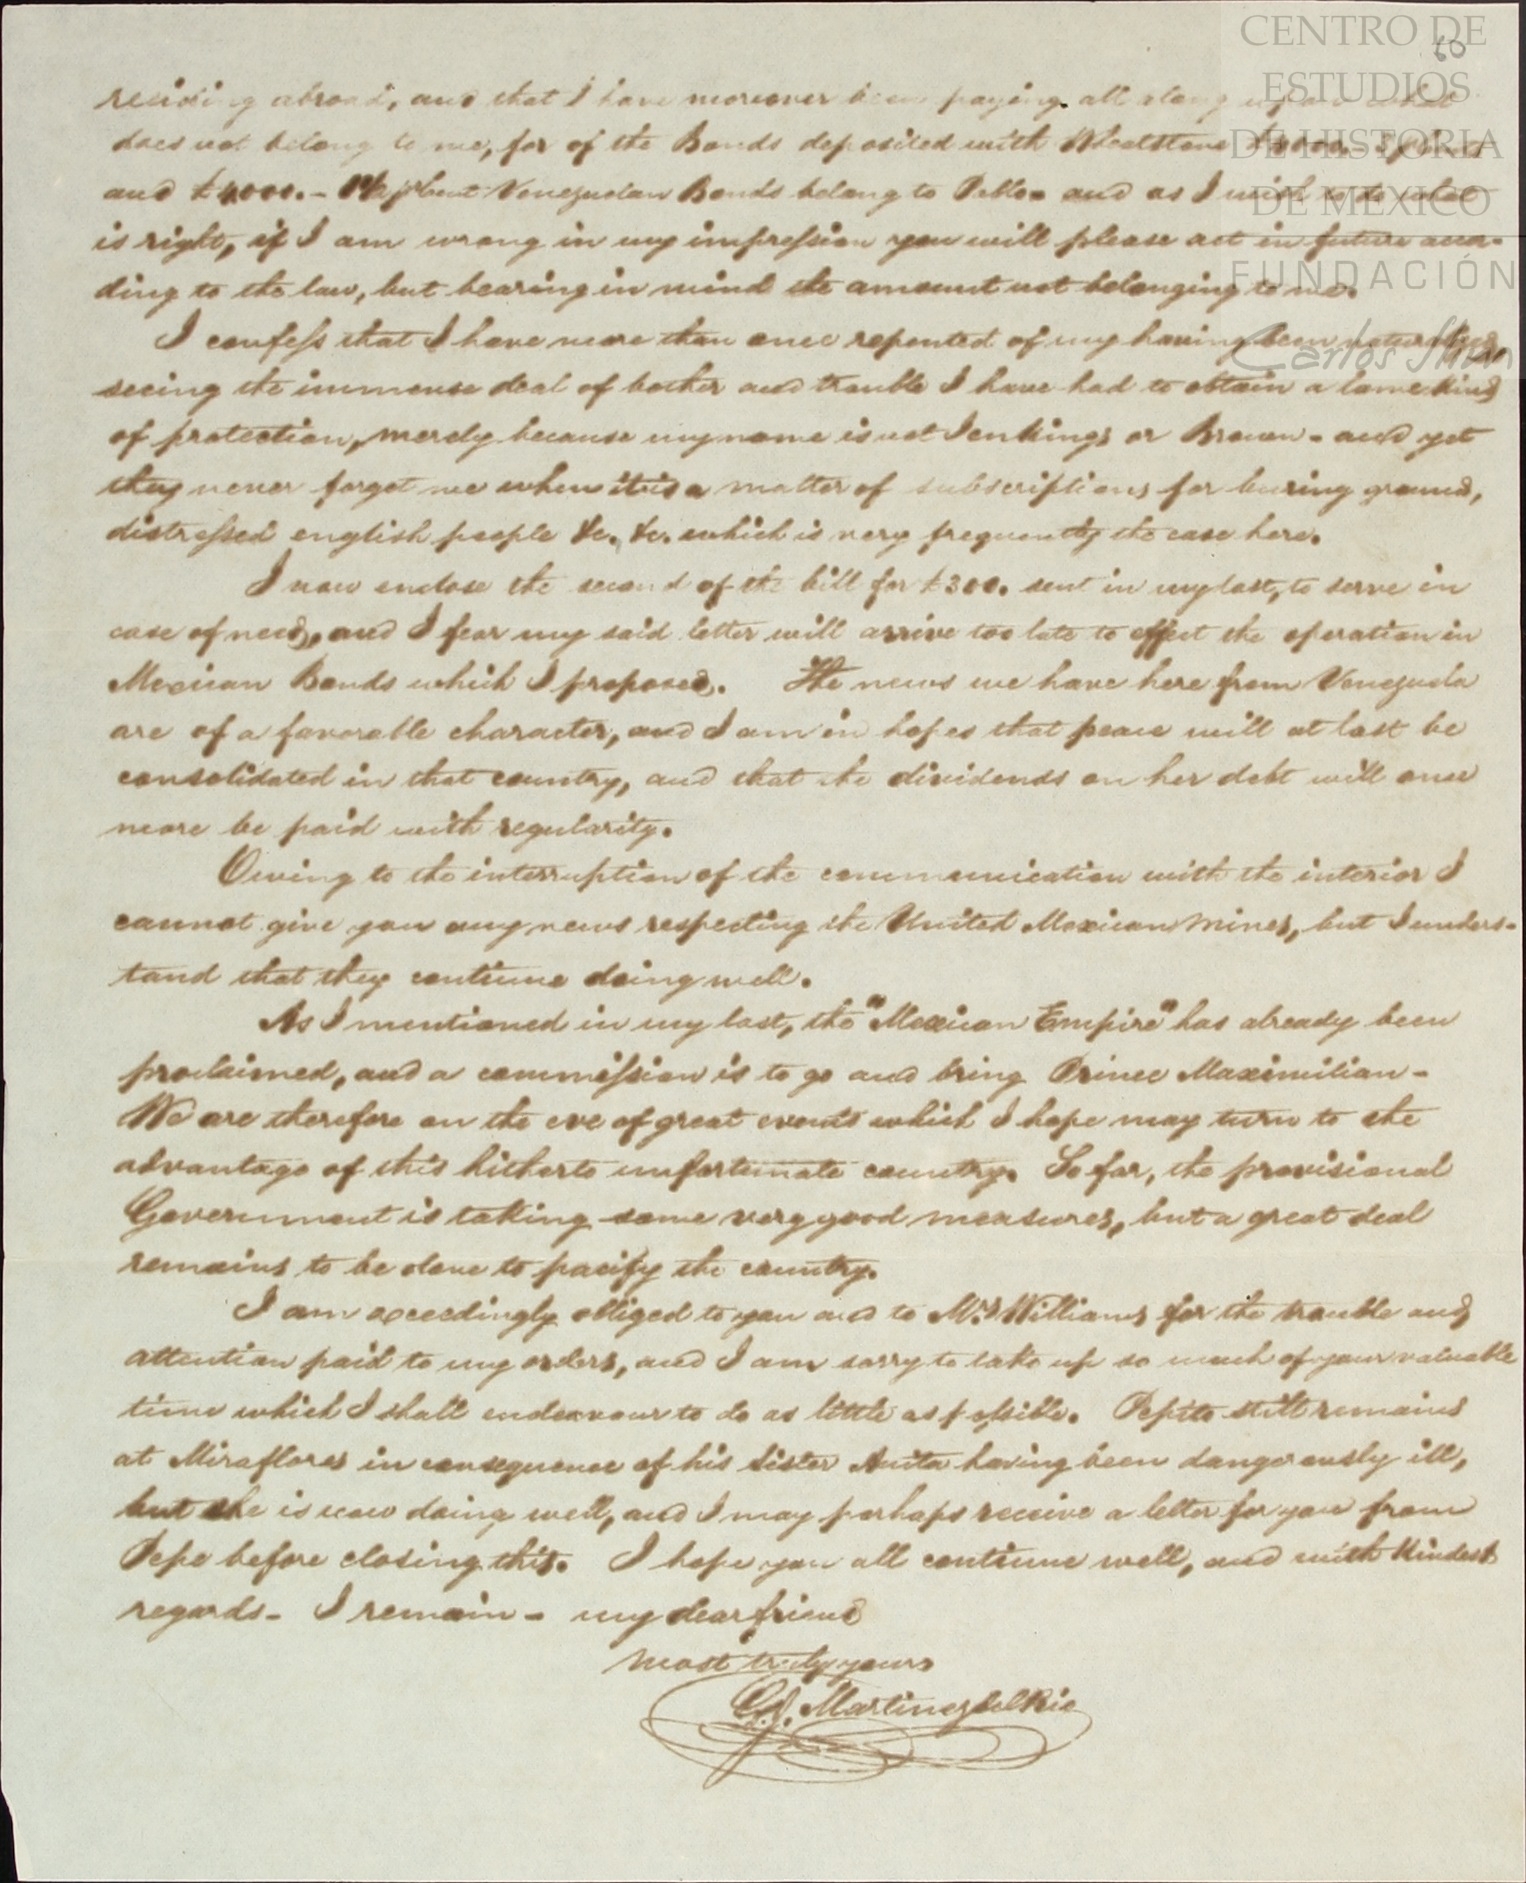 CENTRO DE
ESTUDIOS
DE HISTORIA
DE MEXICO
FUNDACIÓN
Carlos Slim
60
residing abroad, and that I have moreover been paying all along upon what
does not belong to me, for of the Bonds deposited with Wheatstone
and £4000.- Venezuelan Bonds belong to Pablo - and as I wish to do what
is right, if I am wrong in my impression you will please act in future accor-
ding to the law, but bearing in mind the amount not belonging to me.
I confess that I have more than once repented of my having been naturalized
seeing the immense deal of bother and trouble I have had to obtain a lame kind
of protection, merely because my name is not Jenkings or Brown - and yet
they never forget me when it is a matter of subscriptions for buring ground,
distressed english people &c. &c. which is very frequently the case here.
I now enclose the second of the bill for £300. sent in my last, to serve in
case of need, and I fear my said letter will arrive too late to effect the operation in
Mexican Bonds which I proposed. The news we have here from Venezuela
are of a favorable character, and I am in hopes that peace will at last be
consolidated in that country, and that the dividends on her debt will once
more be paid with regularity.
Owing to the interruption of the communication with the interior I
cannot give you any news respecting the United Mexican Mines, but I unders-
tand that they continue doing well.
As I mentioned in my last, the "Mexican Empire" has already been
proclaimed, and a commission is to go and bring Prince Maximilian -
We are therefore on the eve of great events which I hope may turn to the
advantage of this hitherto unfortunate country. So far, the provisional
Government is taking some very good measures, but a great deal
remains to be done to pacify the country.
I am exceedingly obliged to you and to Mr. Williams for the trouble and
attention paid to my orders, and I am sorry to take up so much of your valuable
time which I shall endeavour to do as little as possible. Pepito still remains
at Miraflores in consequence of his sister Anita having been dangerously ill,
but she is now doing well, and I may perhaps receive a letter for you from
Pepe before closing this. I hope you all continue well, and with kindest
regards - I remain - my dear friend
most truly yours
G. J. Martinez del Rio